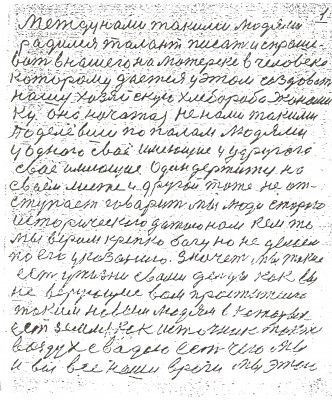 1
Между нами такими людями
родился талант писать и спраши
вать в нашего на матерке в человека
которому дается у этом создовать
нашу хозяйскую хлебороба Экономи
ку она начата не нами такими
поделевили по палам людями
у одного своё имеющие у другого
своё имеющие один держит на
своём месте и другой тоже не от-
ступает говорит мы люди старого
исторического датионом кем то
мы верим крепко богу но не делаем
по его указанию. Значет мы такие
есть у жизни своими деды как вы
не верующие вам простительно
таким новым людям в которых
есть земля как источник также
воздух с водою есть чего мы
и вы все наши враги мы этого